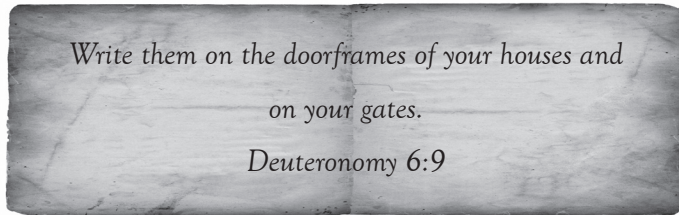 Write them on the doorframes of your houses and
on your gates.
Deuteronomy 6:9